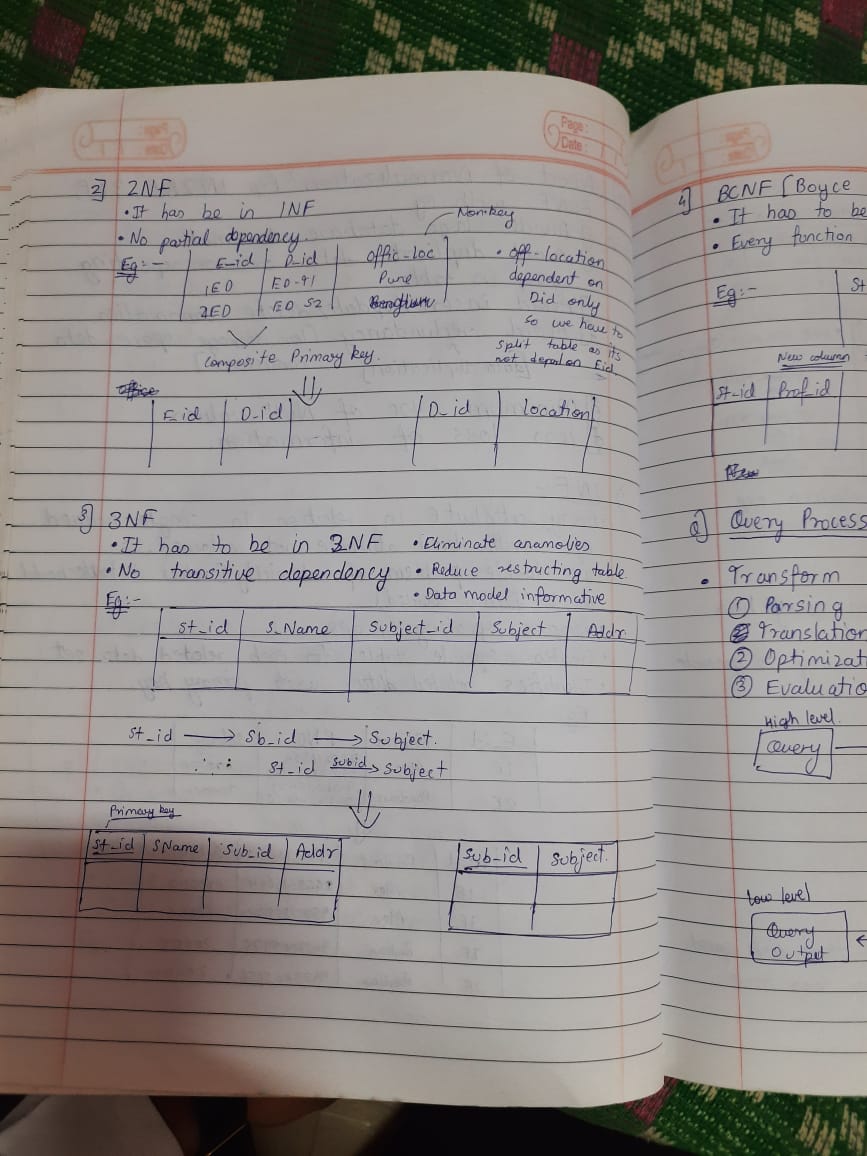 Page:
Date:
2] 2NF
• It has be in 1NF
• No partial dependency.
Non-key
Eg:- E-id D-id offic-loc
1ED ED-91 Pune
2ED ED 52
• off-location
dependent on
Did only
so we have to
split table as its
not depend on Eid
Composite Primary key.
E_id D_id
D_id location
3] 3NF
• It has to be in 2NF
• No transitive dependency
• Eliminate anamolies
• Reduce restructing table
• Data model informative
Eg:-
St_id S_Name Subject_id Subject Addr
St_id → Sb_id → Subject.
∴ St_id Subid→ Subject
Primary key
St_id SName Sub_id Addr
Sub-id Subject.
4] BCNF [Boyce
• It has to be
• Every function
Eg:- St
New column
St-id Prof_id
Q] Query Process
• Transform
① Parsing
Translation
② Optimizat
③ Evaluatio
High level.
Query
Low level
Query
Output